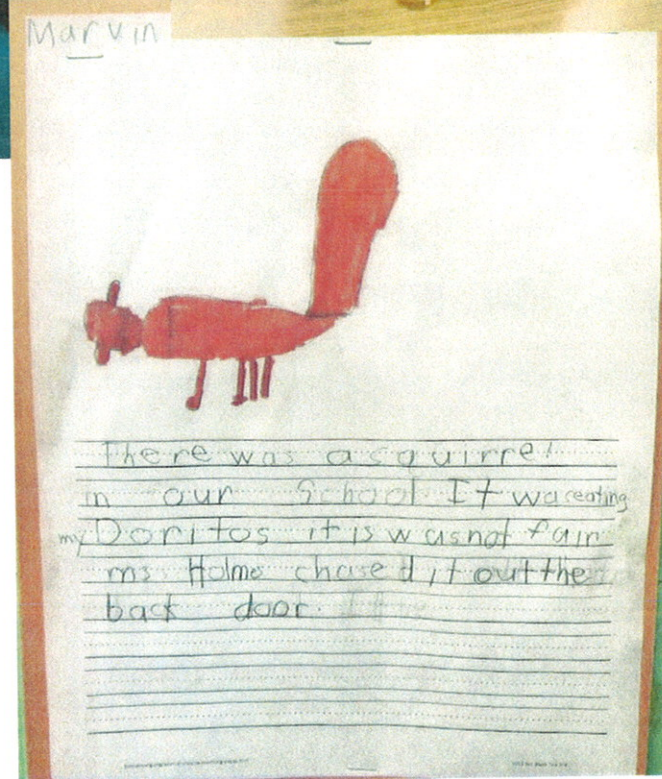 Marvin
There was a squirrel
in our School It was eating
my Doritos it is was not fair
ms Holmo chased it out the
back door. It